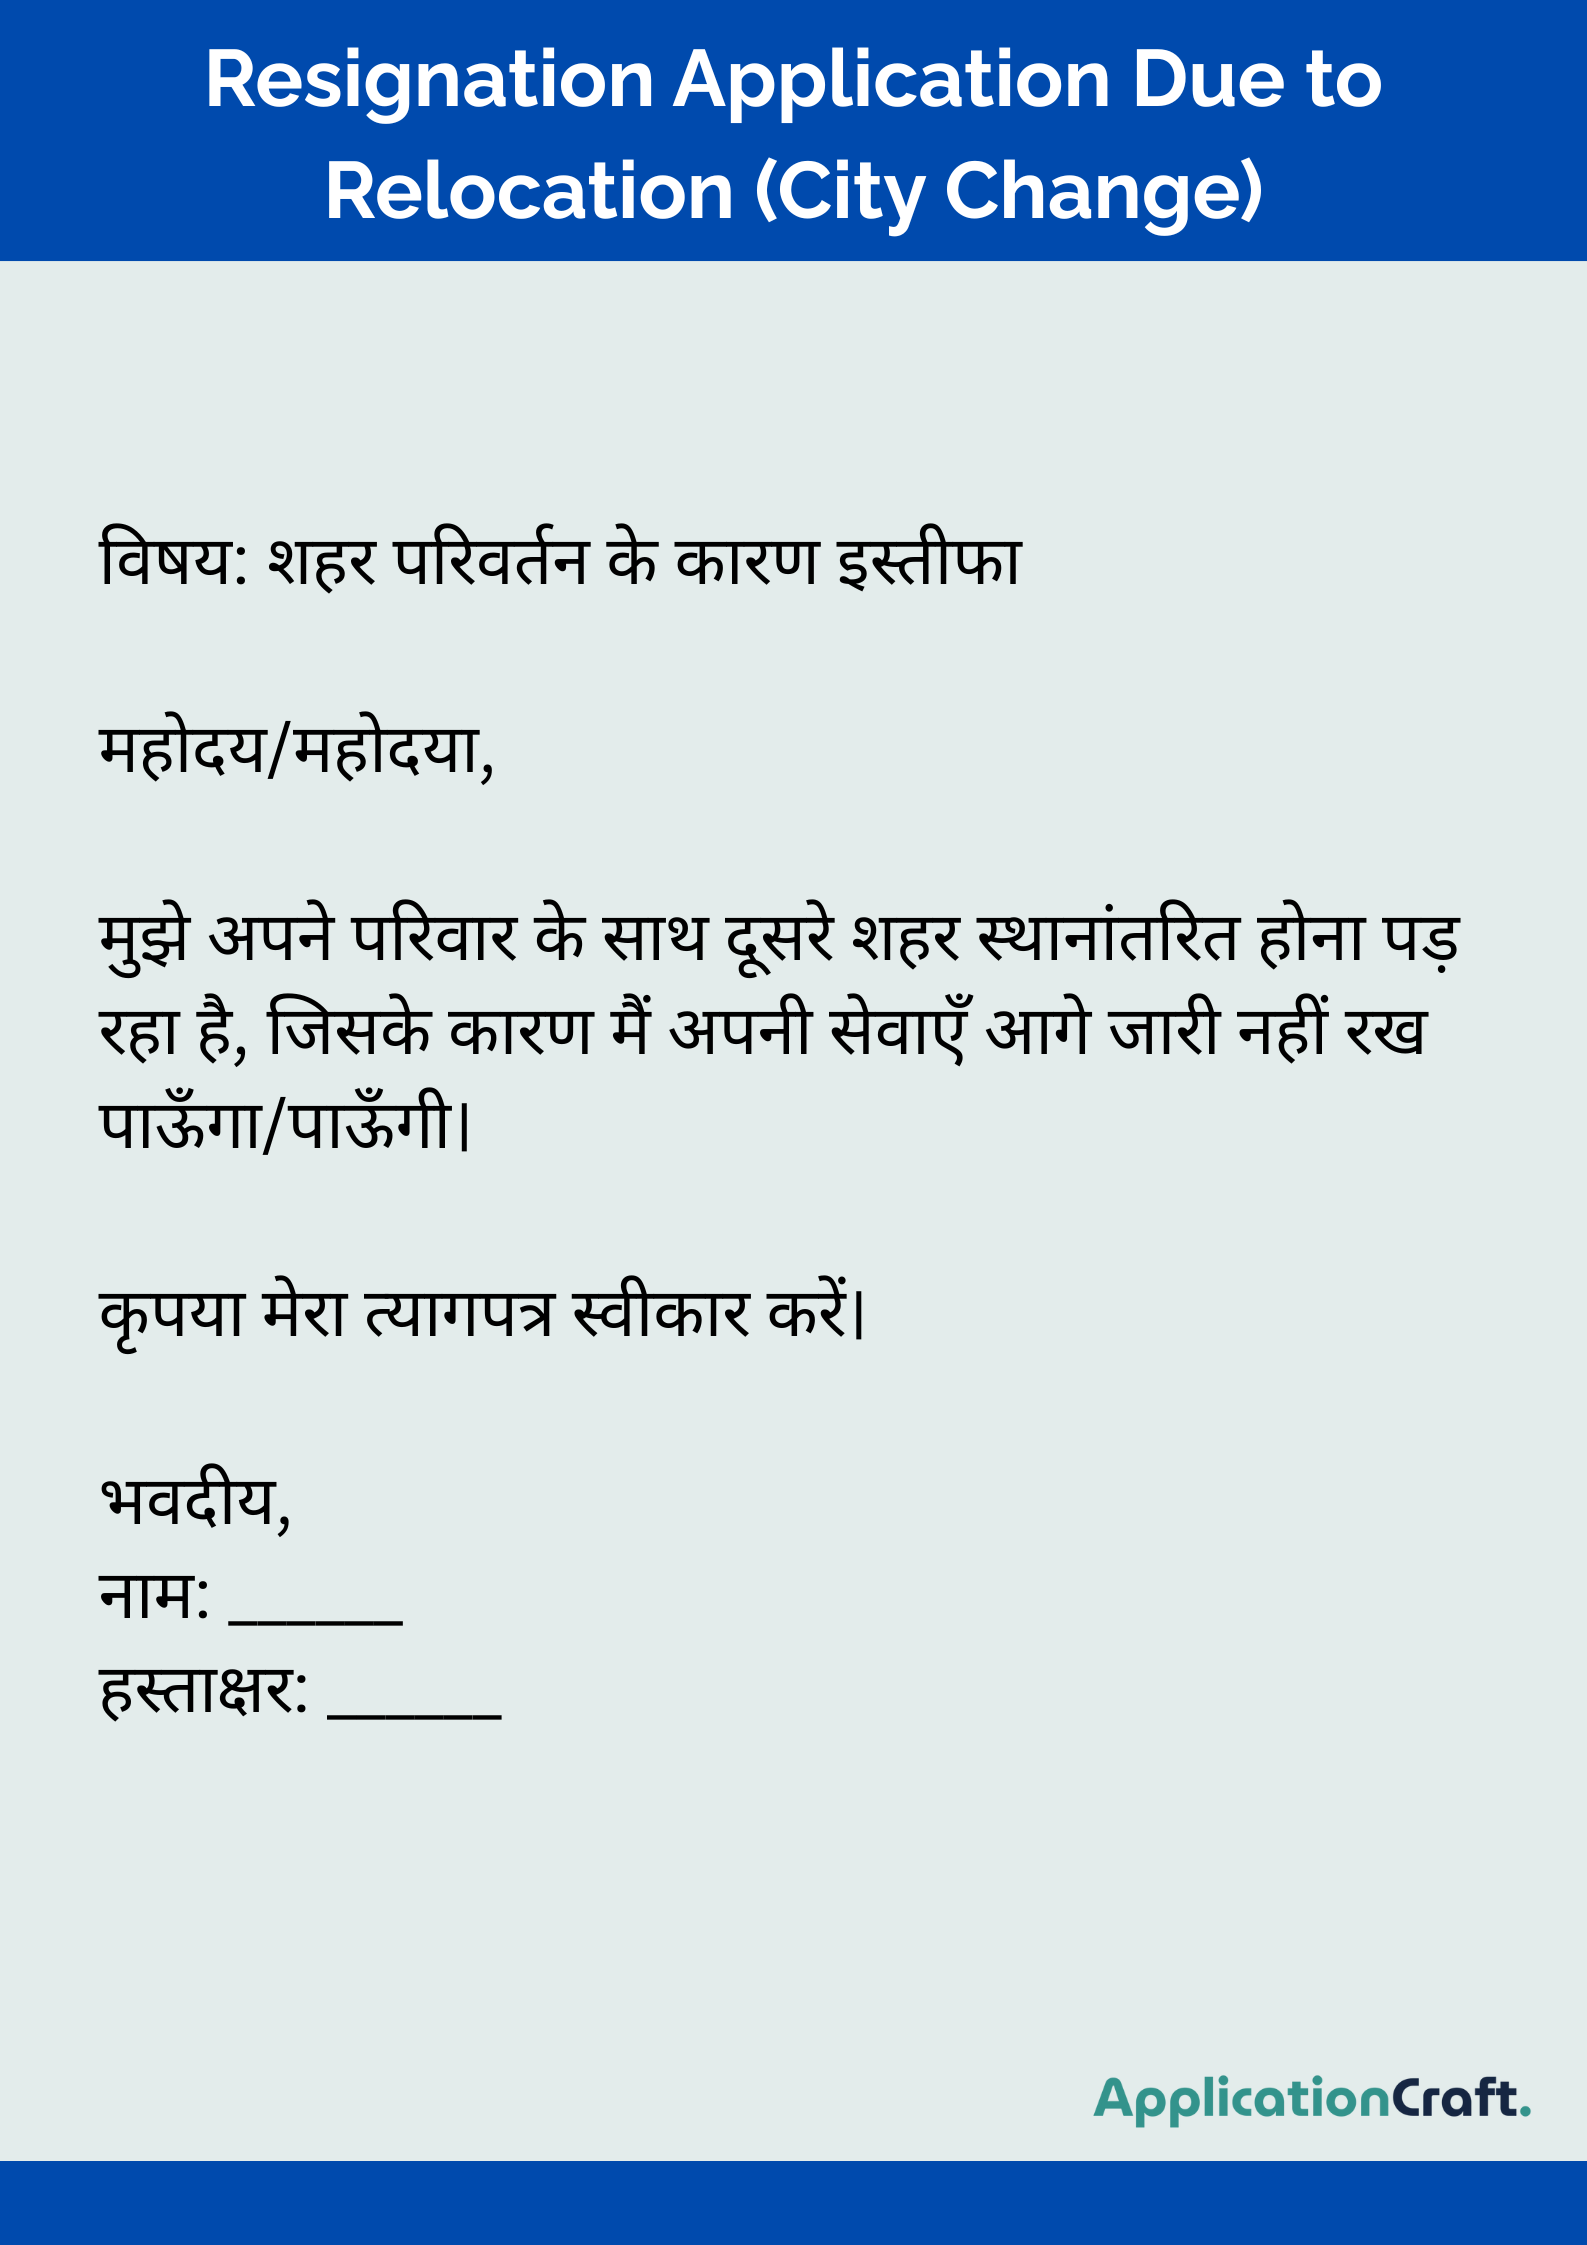 Resignation Application Due to
Relocation (City Change)
विषय: शहर परिवर्तन के कारण इस्तीफा
महोदय/महोदया,
मुझे अपने परिवार के साथ दूसरे शहर स्थानांतरित होना पड़
रहा है, जिसके कारण मैं अपनी सेवाएँ आगे जारी नहीं रख
पाऊँगा/पाऊँगी।
कृपया मेरा त्यागपत्र स्वीकार करें।
भवदीय,
नाम: ______
हस्ताक्षर: ______
ApplicationCraft.